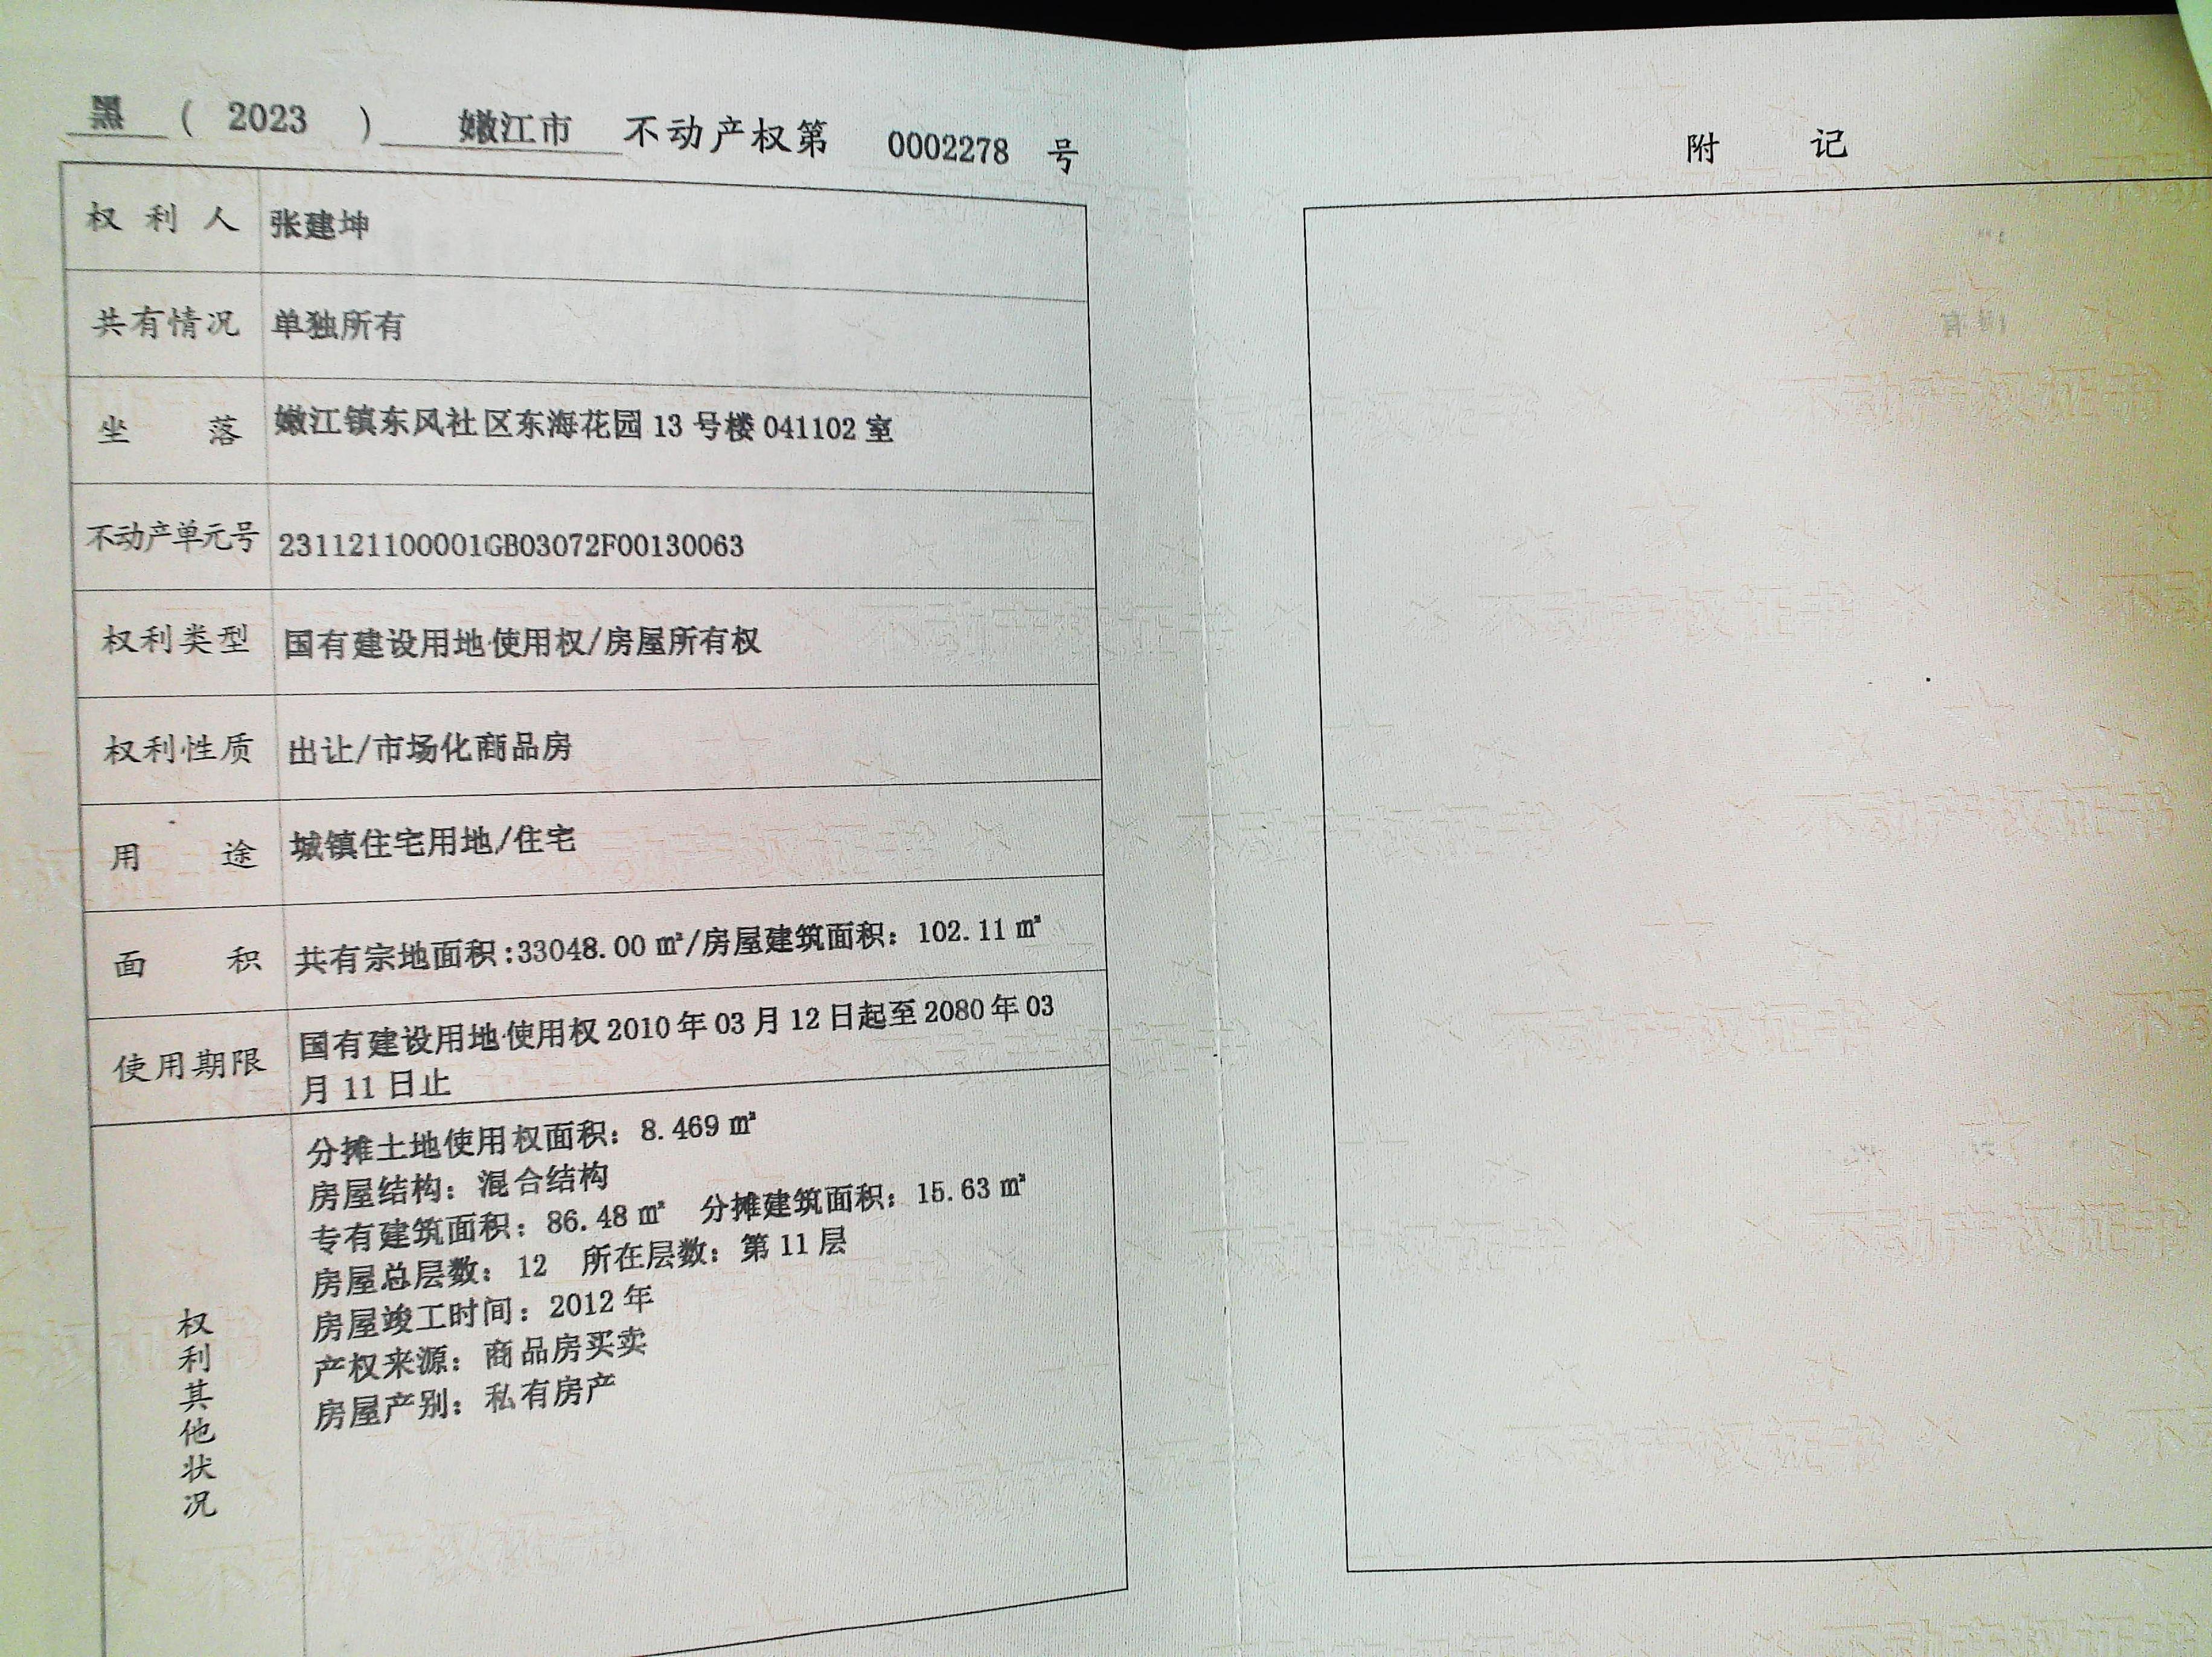 黑 ( 2023 ) 嫩江市 不动产权第 0002278 号
权利人 张建坤
共有情况 单独所有
坐落 嫩江镇东风社区东海花园 13 号楼 041102 室
不动产单元号 231121100001GB03072F00130063
权利类型 国有建设用地使用权/房屋所有权
权利性质 出让/市场化商品房
用途 城镇住宅用地/住宅
面积 共有宗地面积:33048.00 ㎡/房屋建筑面积: 102.11 ㎡
使用期限 国有建设用地使用权 2010 年 03 月 12 日起至 2080 年 03
月 11 日止
权利其他状况
分摊土地使用权面积: 8.469 ㎡
房屋结构: 混合结构
专有建筑面积: 86.48 ㎡ 分摊建筑面积: 15.63 ㎡
房屋总层数: 12 所在层数: 第 11 层
房屋竣工时间: 2012 年
产权来源: 商品房买卖
房屋产别: 私有房产
附记